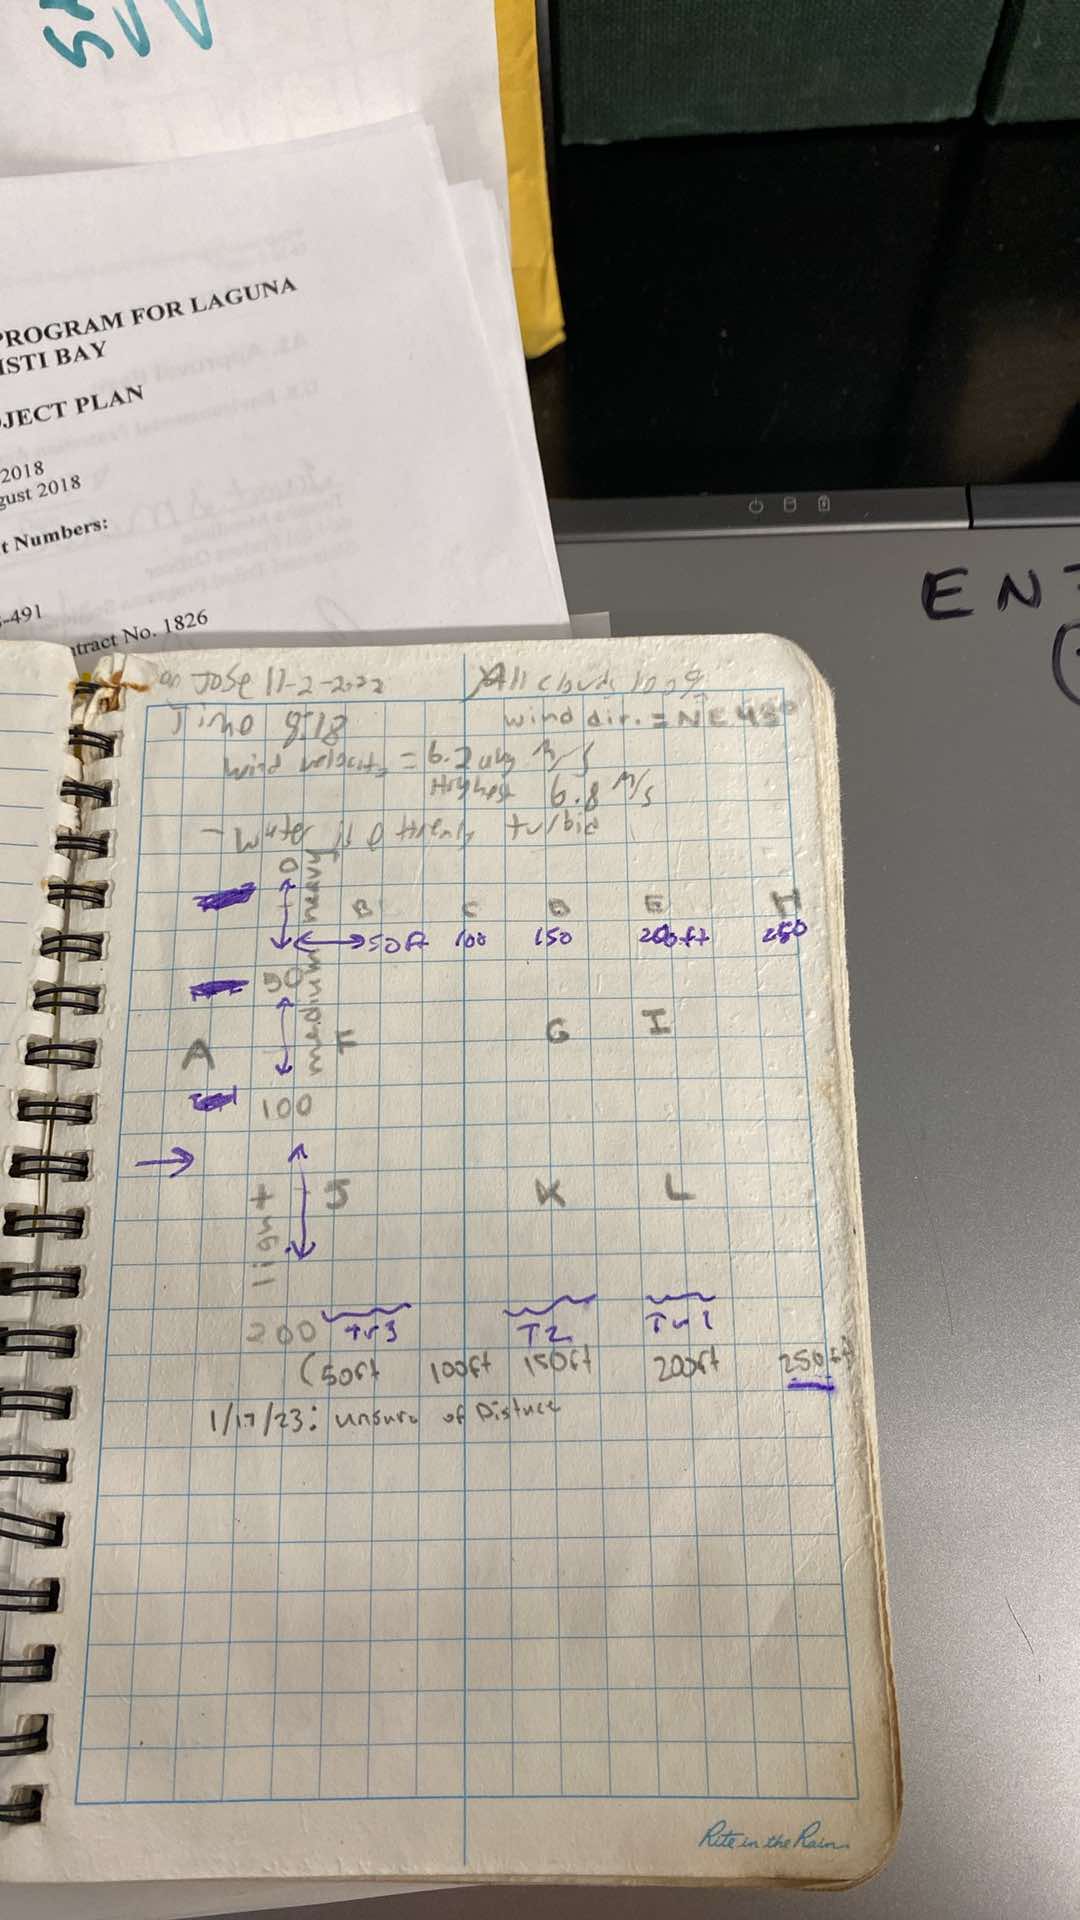 PROGRAM FOR LAGUNA
ISTI BAY
JECT PLAN
2018
gust 2018
t Numbers:
-491
tract No. 1826
EN
Jose 11-2-2022
All clouds 100%
Time 9:18
wind dir. = NE 45°
wind velocity = 6.2 avg m/s
Highest 6.8 m/s
- Water is turbid
0
heavy
B C D E H
50ft 100 150 200ft 250
50
medium
A F G I
100
light
J K L
200 Tr3 T2 Tr1
(50ft 100ft 150ft 200ft 250ft)
1/17/23: unsure of Distnce
Rite in the Rain